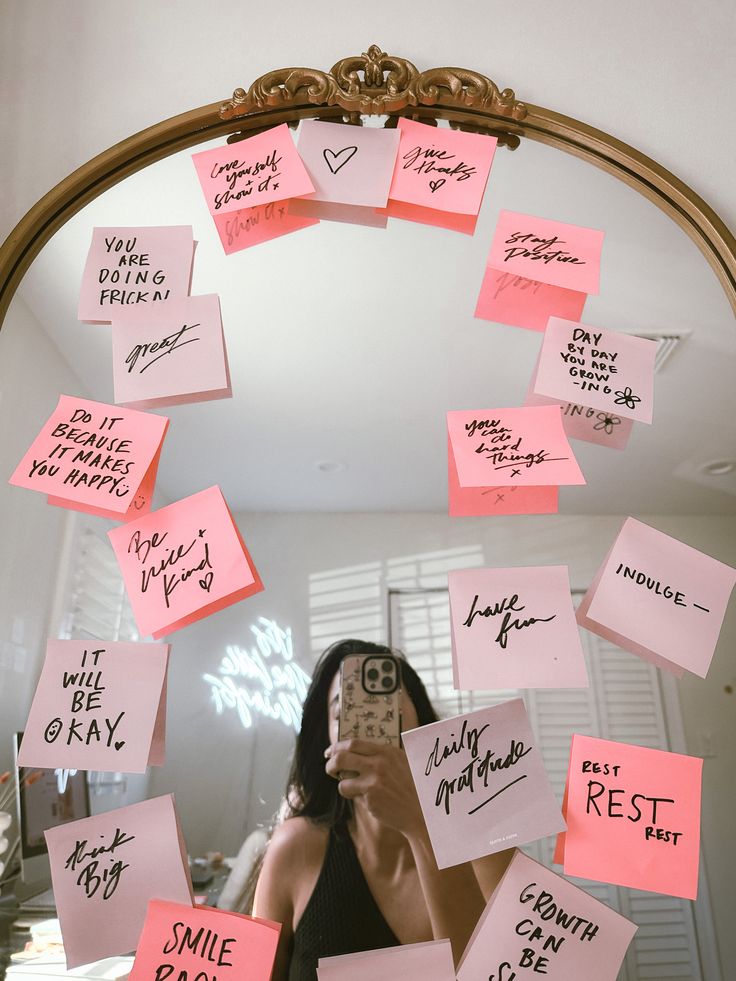 Love
yourself
+
show it x
Give
thanks
YOU
ARE
DOING
FRICKIN
great
Stay
Positive
DAY
BY DAY
YOU ARE
GROW
-ING
DO IT
BECAUSE
IT MAKES
YOU HAPPY
You
can
do
hard
Things
x
Be
nice +
Kind
INDULGE —
have
fun
IT
WILL
BE
OKAY
daily
gratitude
REST
REST
REST
Think
BIG
SMILE
GROWTH
CAN
BE